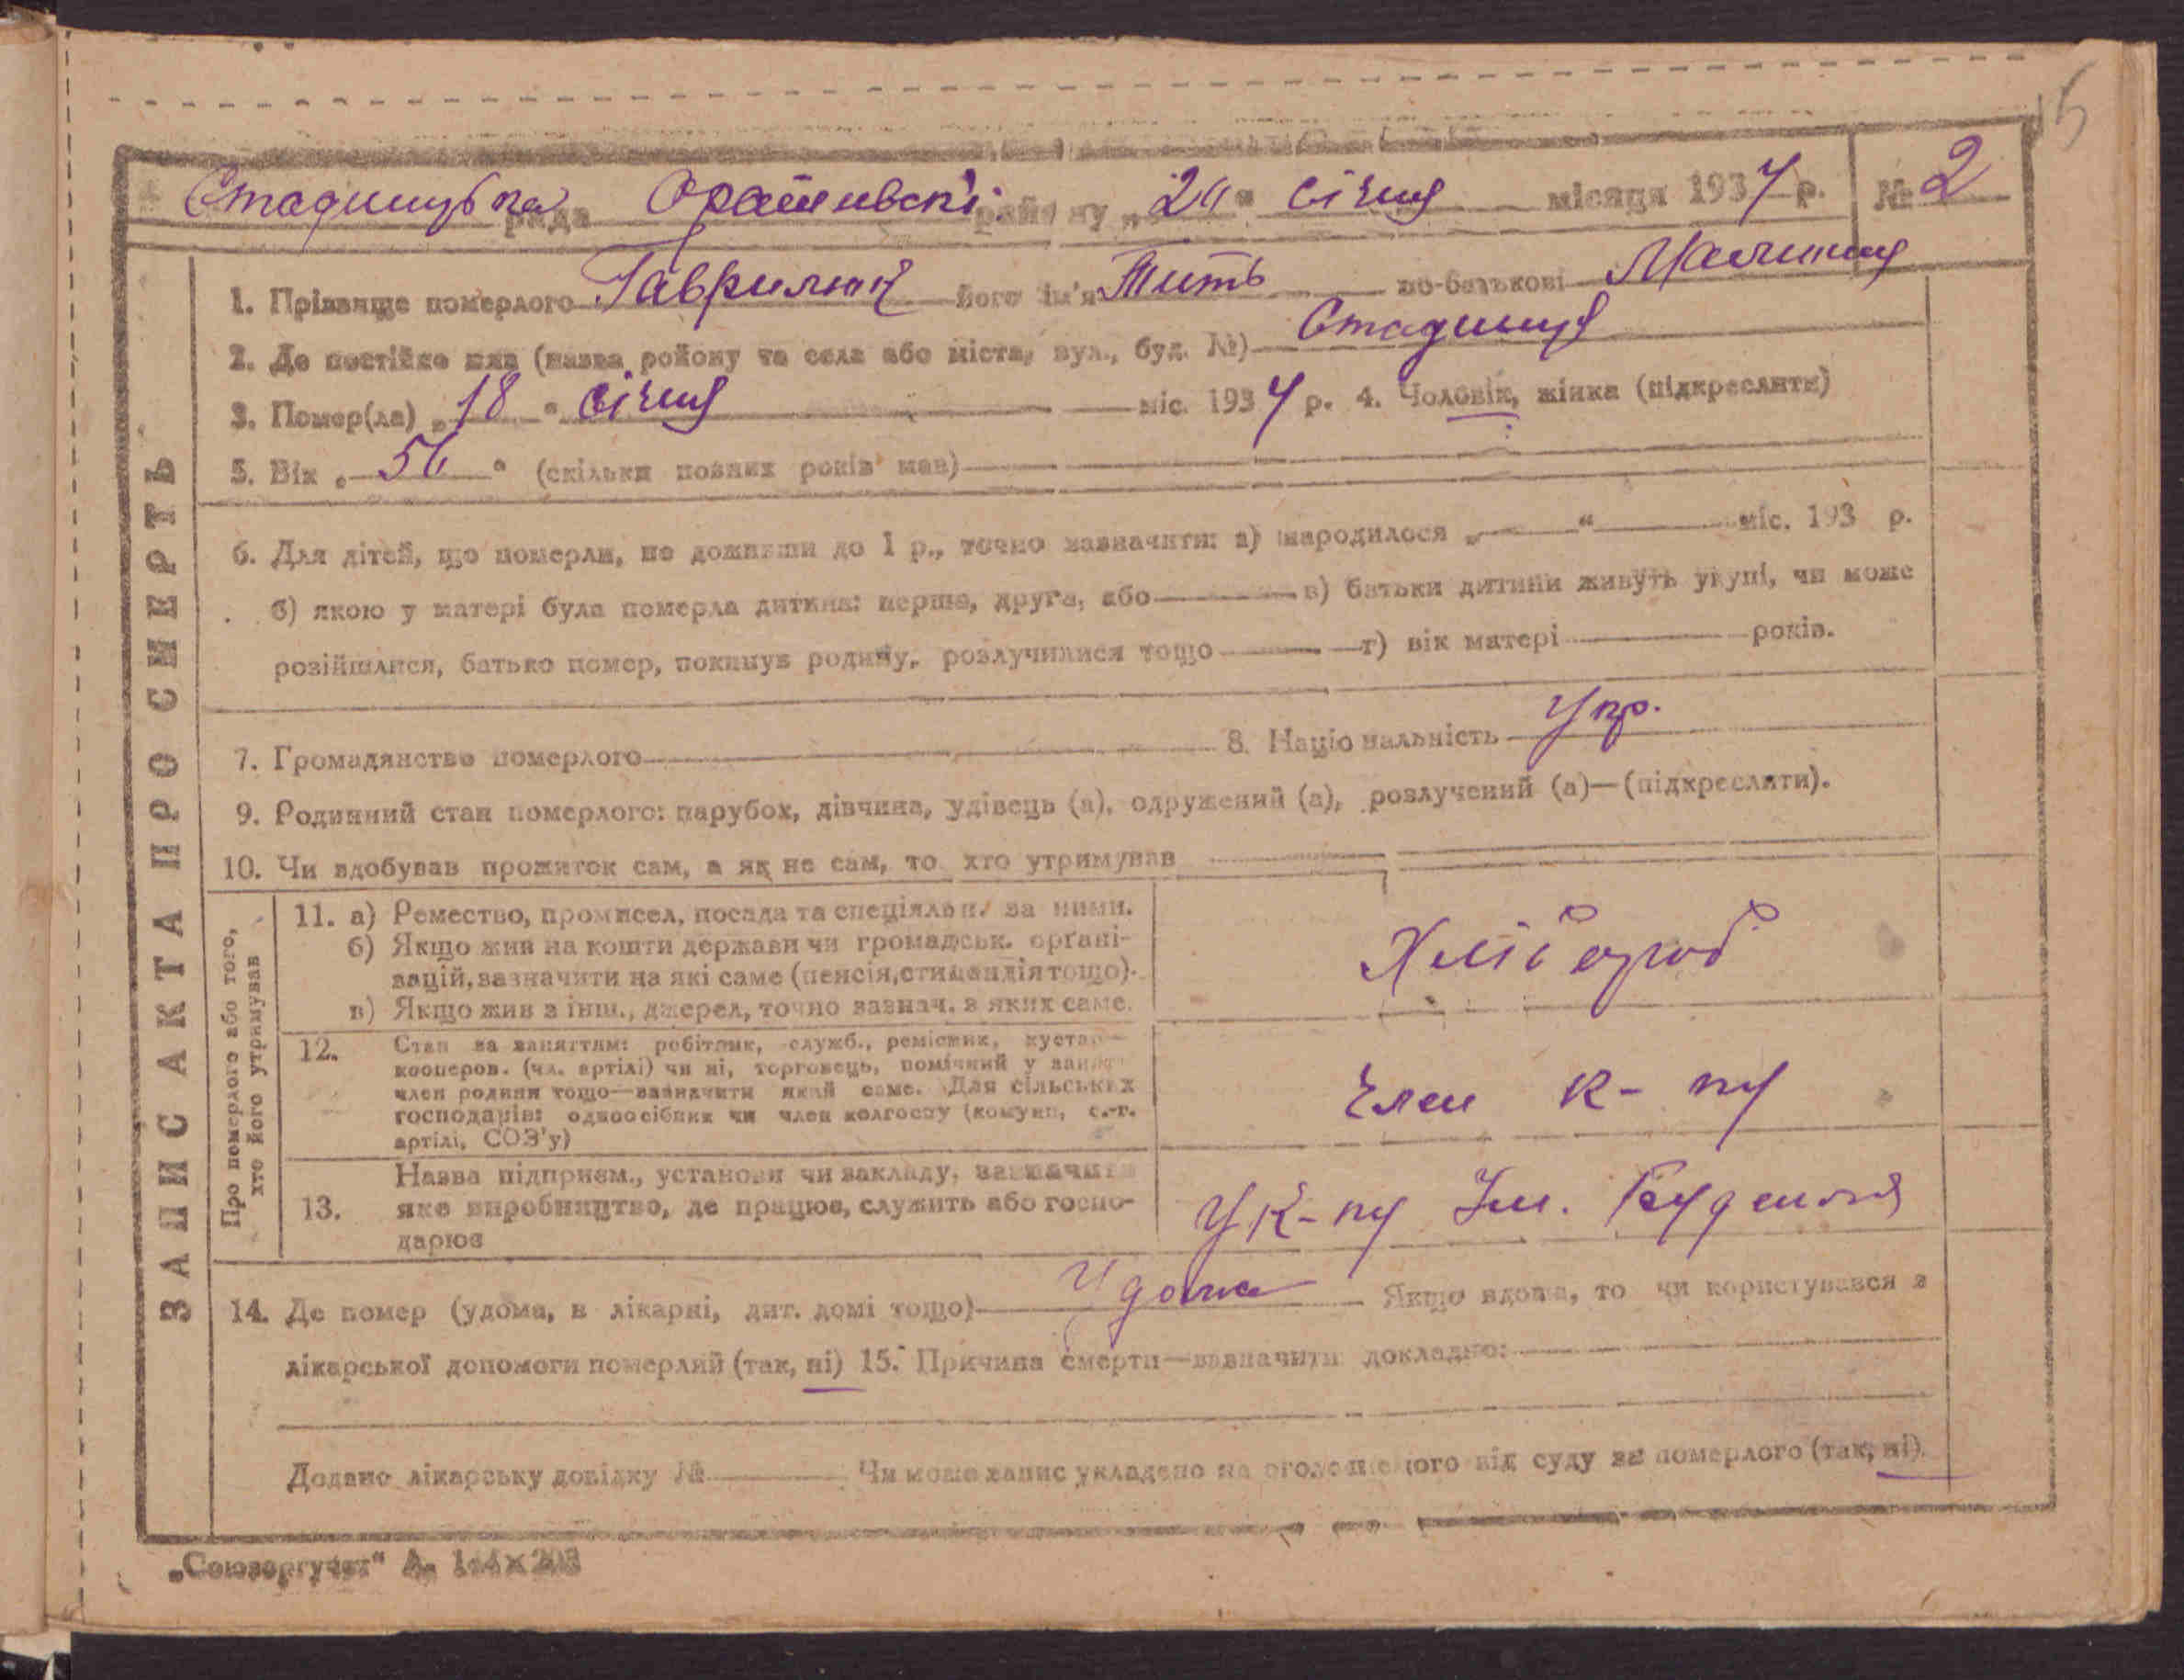 15
Стадницька рада Оратівські району „20“ січня місяця 1934 р. № 2
1. Прізвище померлого Гаврилюк його ім'я Тить по-батькові
2. Де постійно жив (назва району та села або міста, вул., буд. №) Стадниця
3. Помер(ла) „18“ січня міс. 1934 р. 4. Чоловік, жінка (підкреслити)
5. Вік „56“ (скільки повних років мав)
6. Для дітей, що померли, не доживши до 1 р., точно зазначити: а) народилося „ “ міс. 193 р.
б) якою у матері була померла дитина: перша, друга, або в) батьки дитини живуть укупі, чи може
розійшлися, батько помер, покинув родину, розлучилися тощо г) вік матері років.
7. Громадянство померлого 8. Національність Укр.
9. Родинний стан померлого: парубок, дівчина, удівець (а), одружений (а), розлучений (а)—(підкреслити).
10. Чи здобував прожиток сам, а як не сам, то хто утримував
ЗАПИС АКТА ПРО СМЕРТЬ
Про померлого або того,
хто його утримував
11. а) Ремество, промисел, посада та спеціяльн. за ними.
б) Якщо жив на кошти держави чи громадськ. орґані-
зацій, зазначити на які саме (пенсія, стипендія тощо).
в) Якщо жив з інш., джерел, точно зазнач. з яких саме.
Хлібороб
12. Стан за заняттям: робітник, служб., ремісник, кустар—
кооперов. (чл. артілі) чи ні, торговець, помічний у занятт
член родини тощо—зазначити який саме. Для сільських
господарів: одноосібник чи член колгоспу (комуни, с.-г.
артілі, СОЗ'у)
Член к-пу
13. Назва підприєм., установи чи закладу, зазначити
яке виробництво, де працює, служить або госпо-
дарює
У К-пу Ім. Будення
14. Де помер (удома, в лікарні, дит. домі тощо) Удома Якщо вдома, то чи користувався з
лікарської допомоги померлий (так, ні) 15. Причина смерти—зазначити докладно:
Додано лікарську довідку № Чи може запис укладено на оголошеного від суду за померлого (так, ні).
„Союзоргучет“ А.